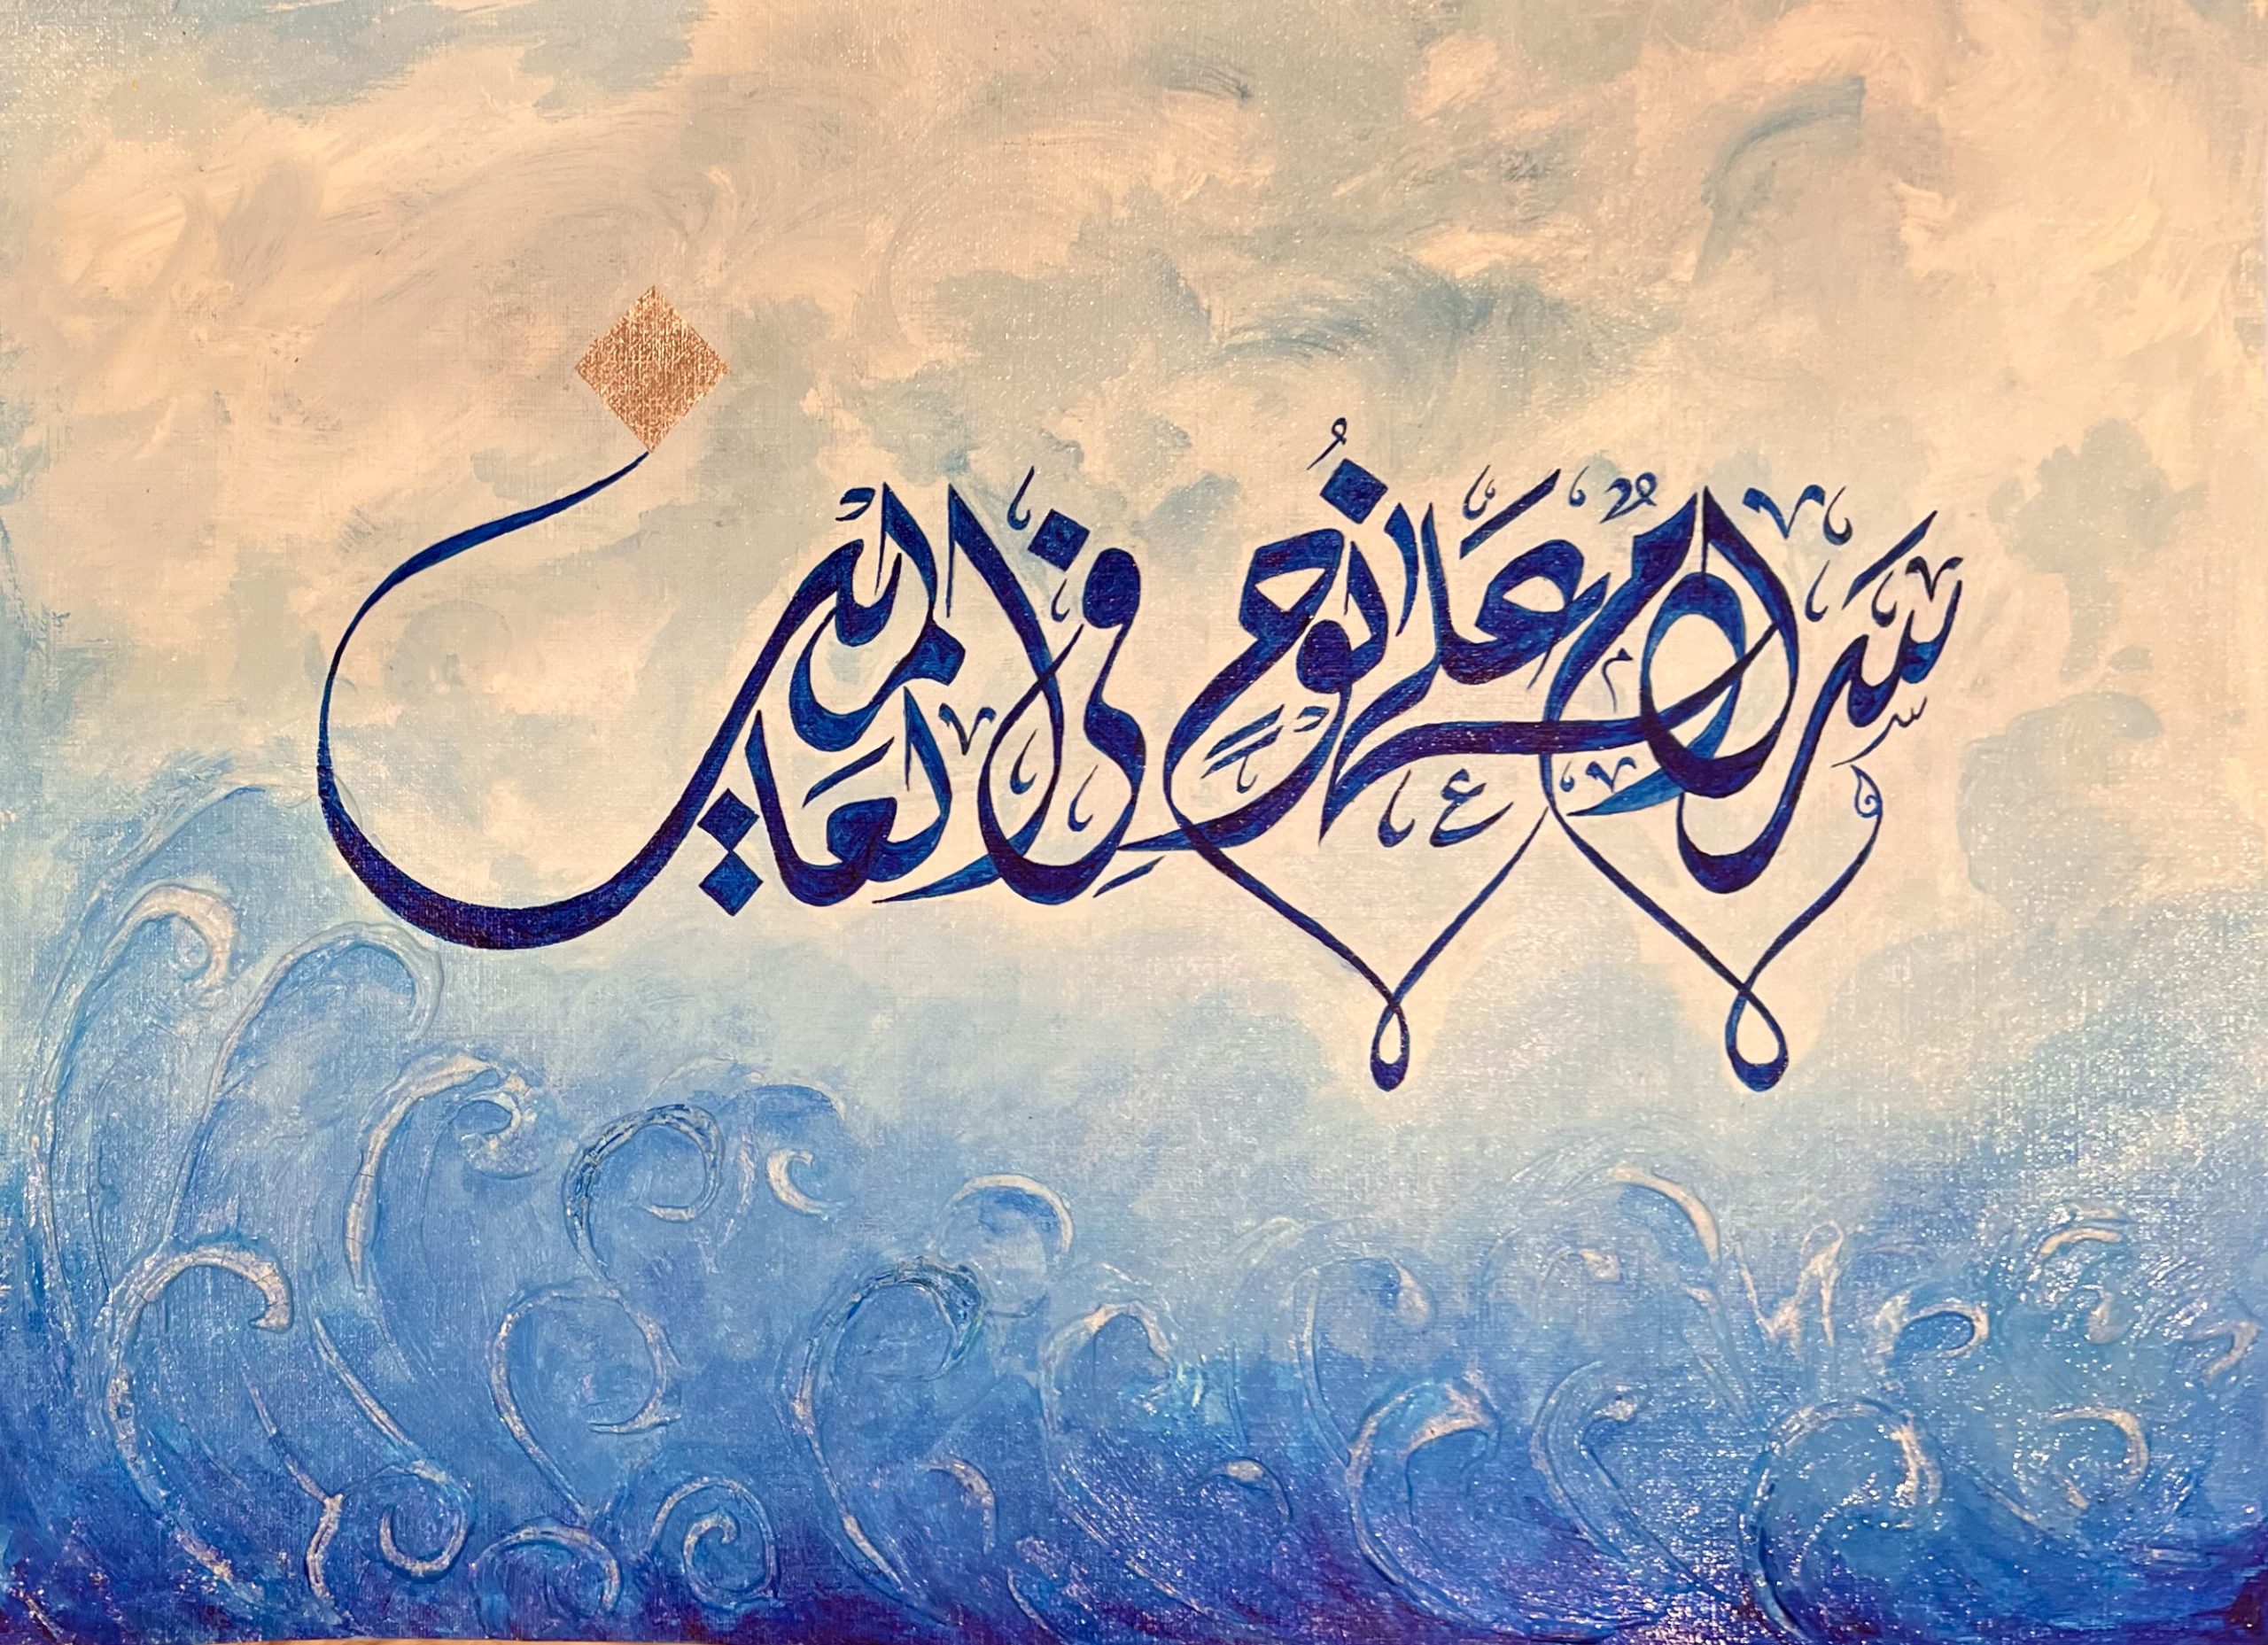 سَلَامٌ عَلَىٰ نُوحٍ فِي الْعَالَمِينَ